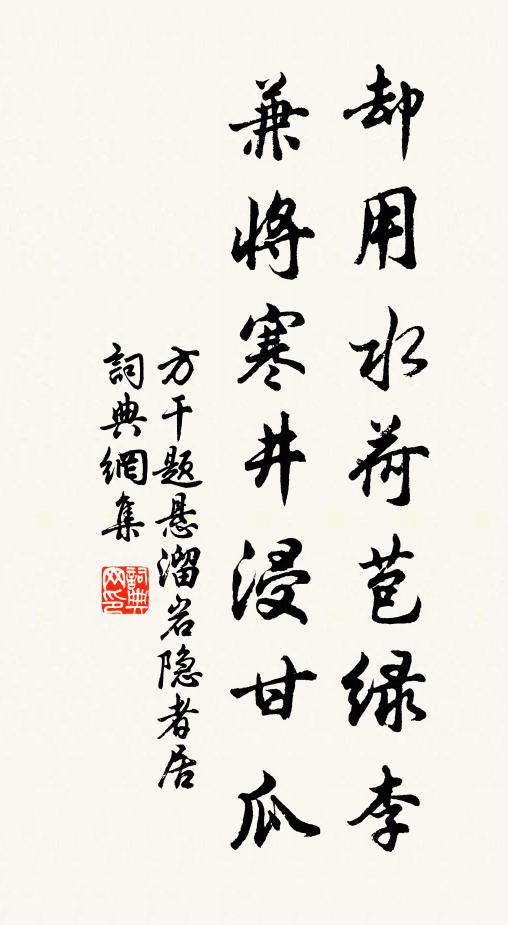 却用水荷苞绿李
兼将寒井浸甘瓜
方干题悬溜岩隐者居
詞典網集
詞典網印